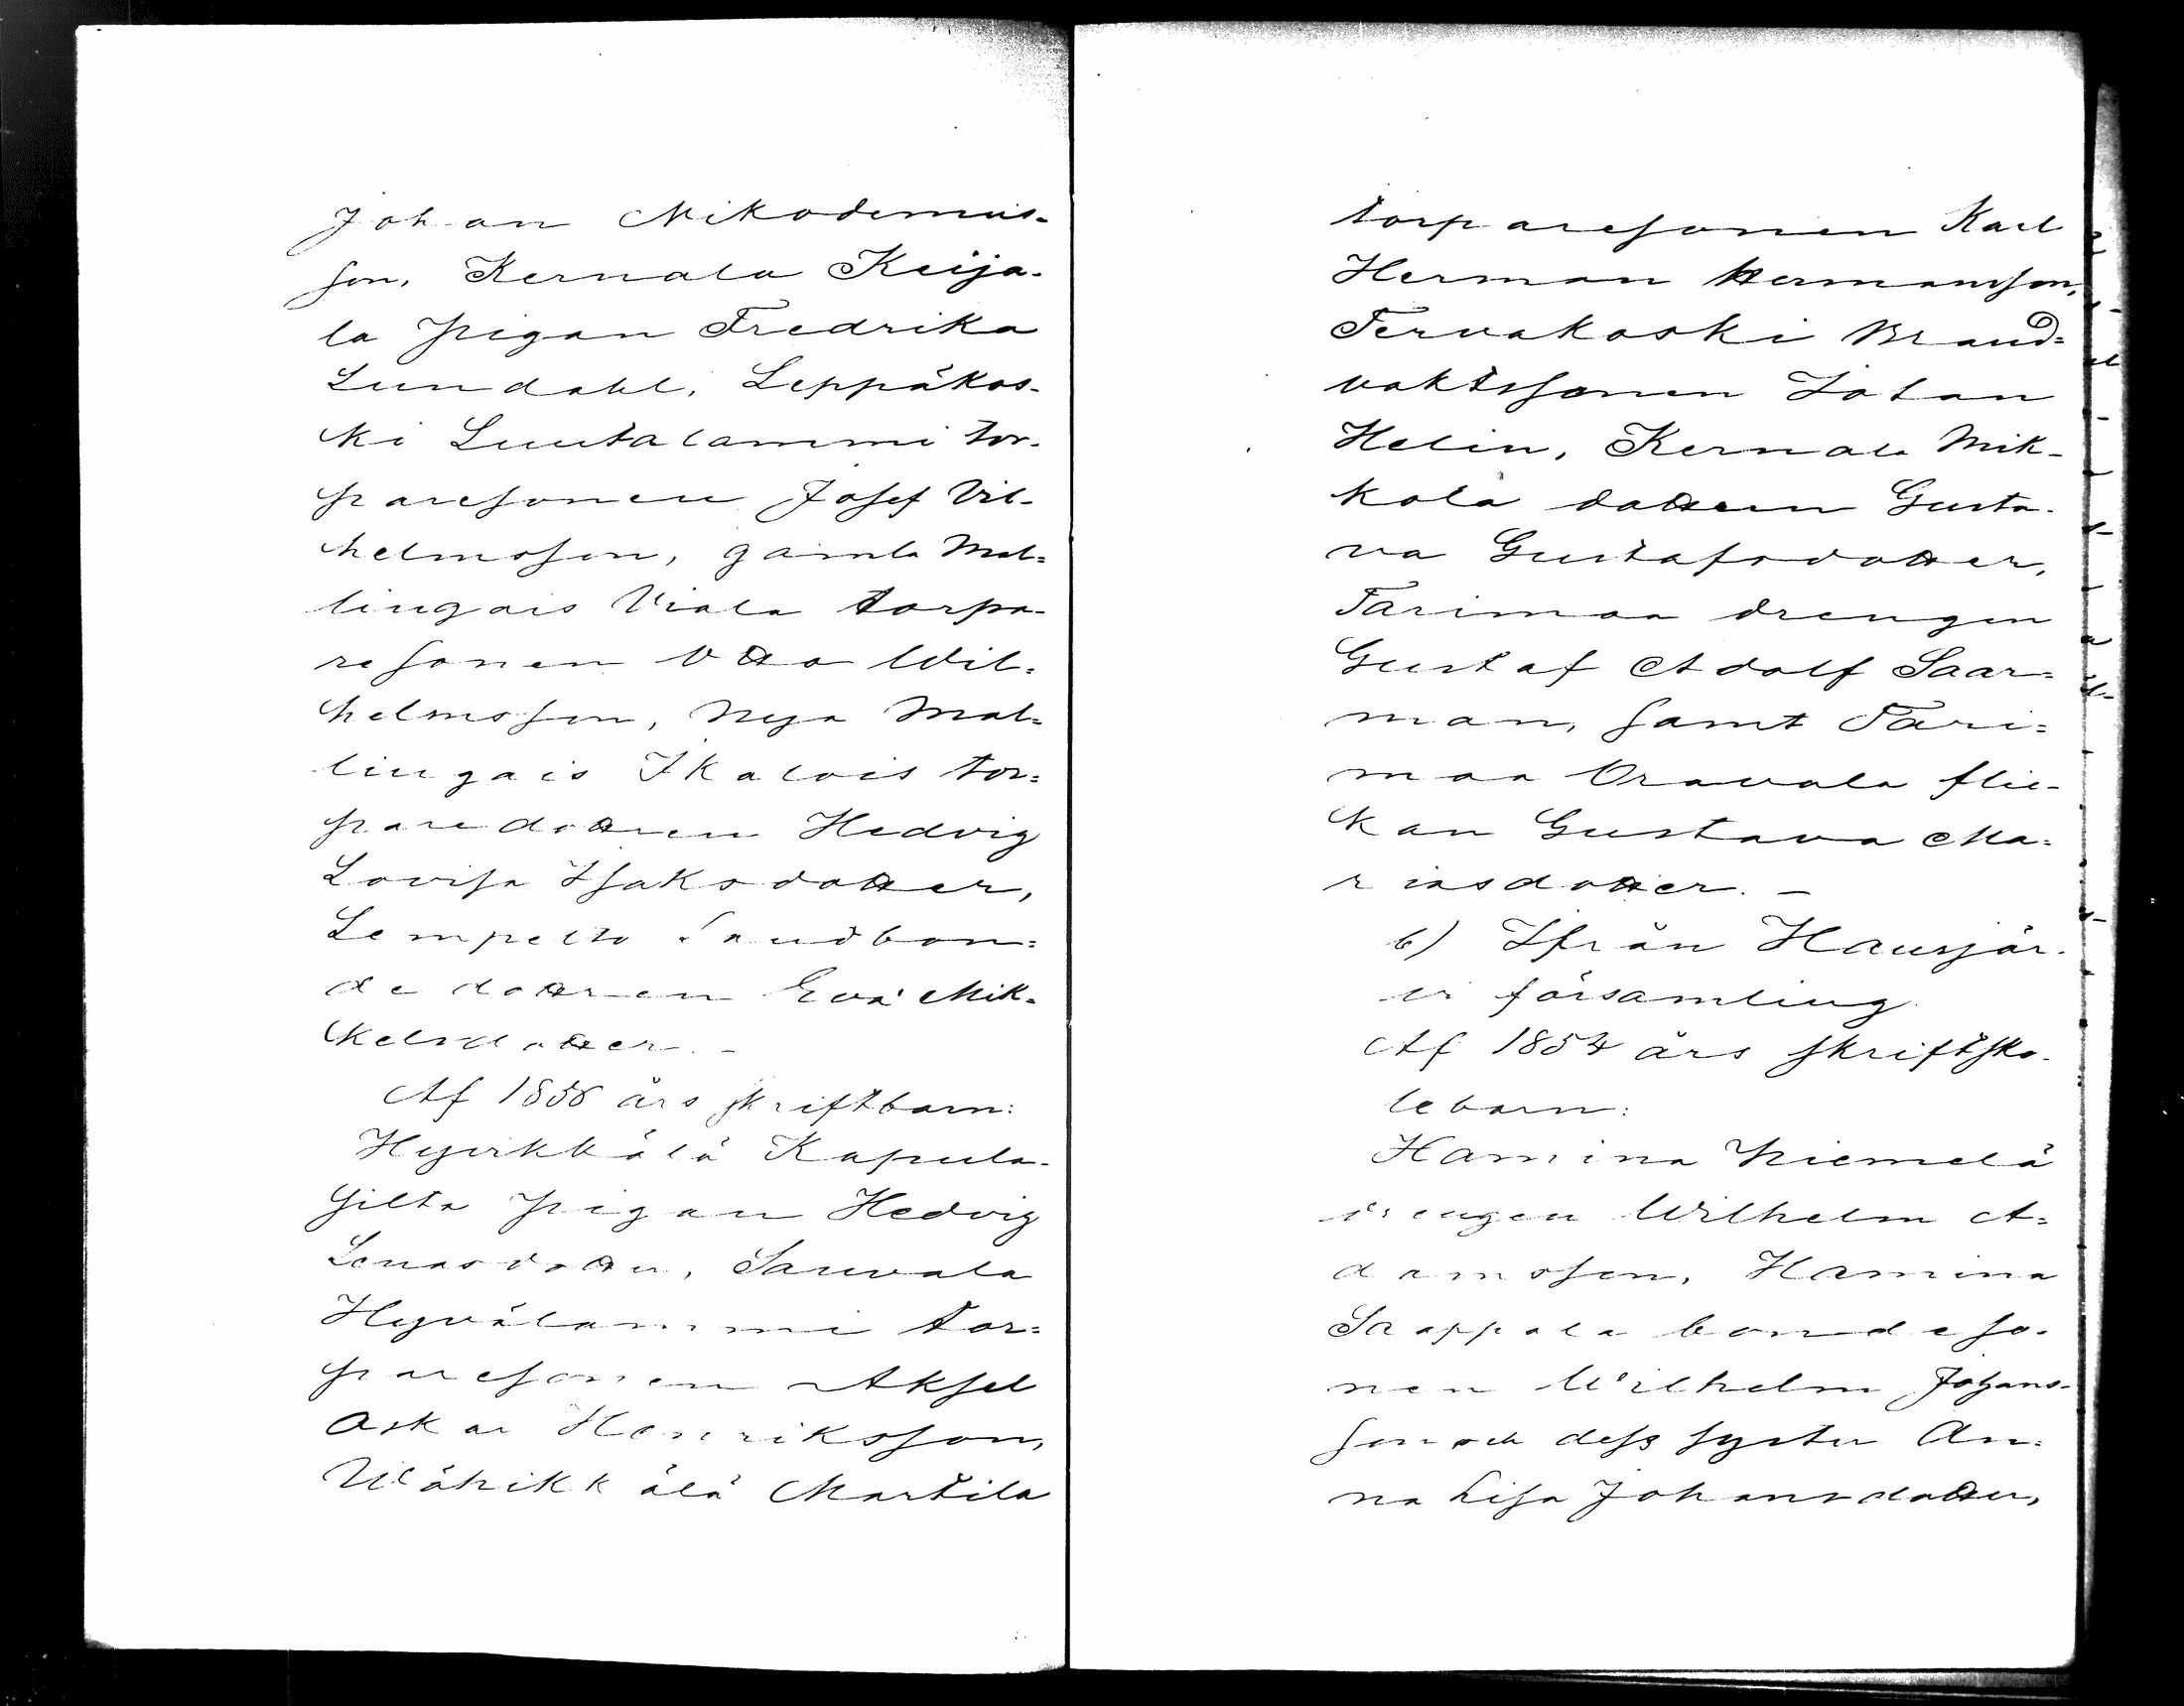 Johan Nikodemus-
son, Kernala Keija-
la pigan Fredrika
Lundahl, Leppäkos-
ki Luutalammi tor-
paresonen Josef Vil-
helmsson, gamla Mal=
lingais Viala torpa-
resonen Otto Wil=
helmsson, Nya Mal=
lingais Ikalois tor=
paredottren Hedvig
Lovisa Isaksdotter,
Lempelto Landbon=
dedottren Eva Mik=
kelsdotter. –
Af 1856 års skriftbarn:
Hyvikkälä Kapula-
silta pigan Hedvig
Lenasdotter, Sauvala
Hyvälammi tor=
paresonen Aksel
Oskar Henriksson,
Wähikkälä Martila
torparesonen Karl
Herman Hermansson,
Tervakoski Brand=
vaktssonen Johan
Helin, Kernala Mik-
kola dottren Gusta-
va Gustafsdotter,
Tarimaa drengen
Gustaf Adolf Saar=
man, samt Tari=
maa Oravala flic-
kan Gustava Ma=
riasdotter. –
b) Ifrån Hausjär-
vi församling.
Af 1854 års skriftsko-
lebarn:
Hamina Niemelä
drengen Wilhelm A=
damsson, Hamina
Sappala bondeso-
nen Wilhelm Johans-
son och dess syster An=
na Lisa Johansdotter,